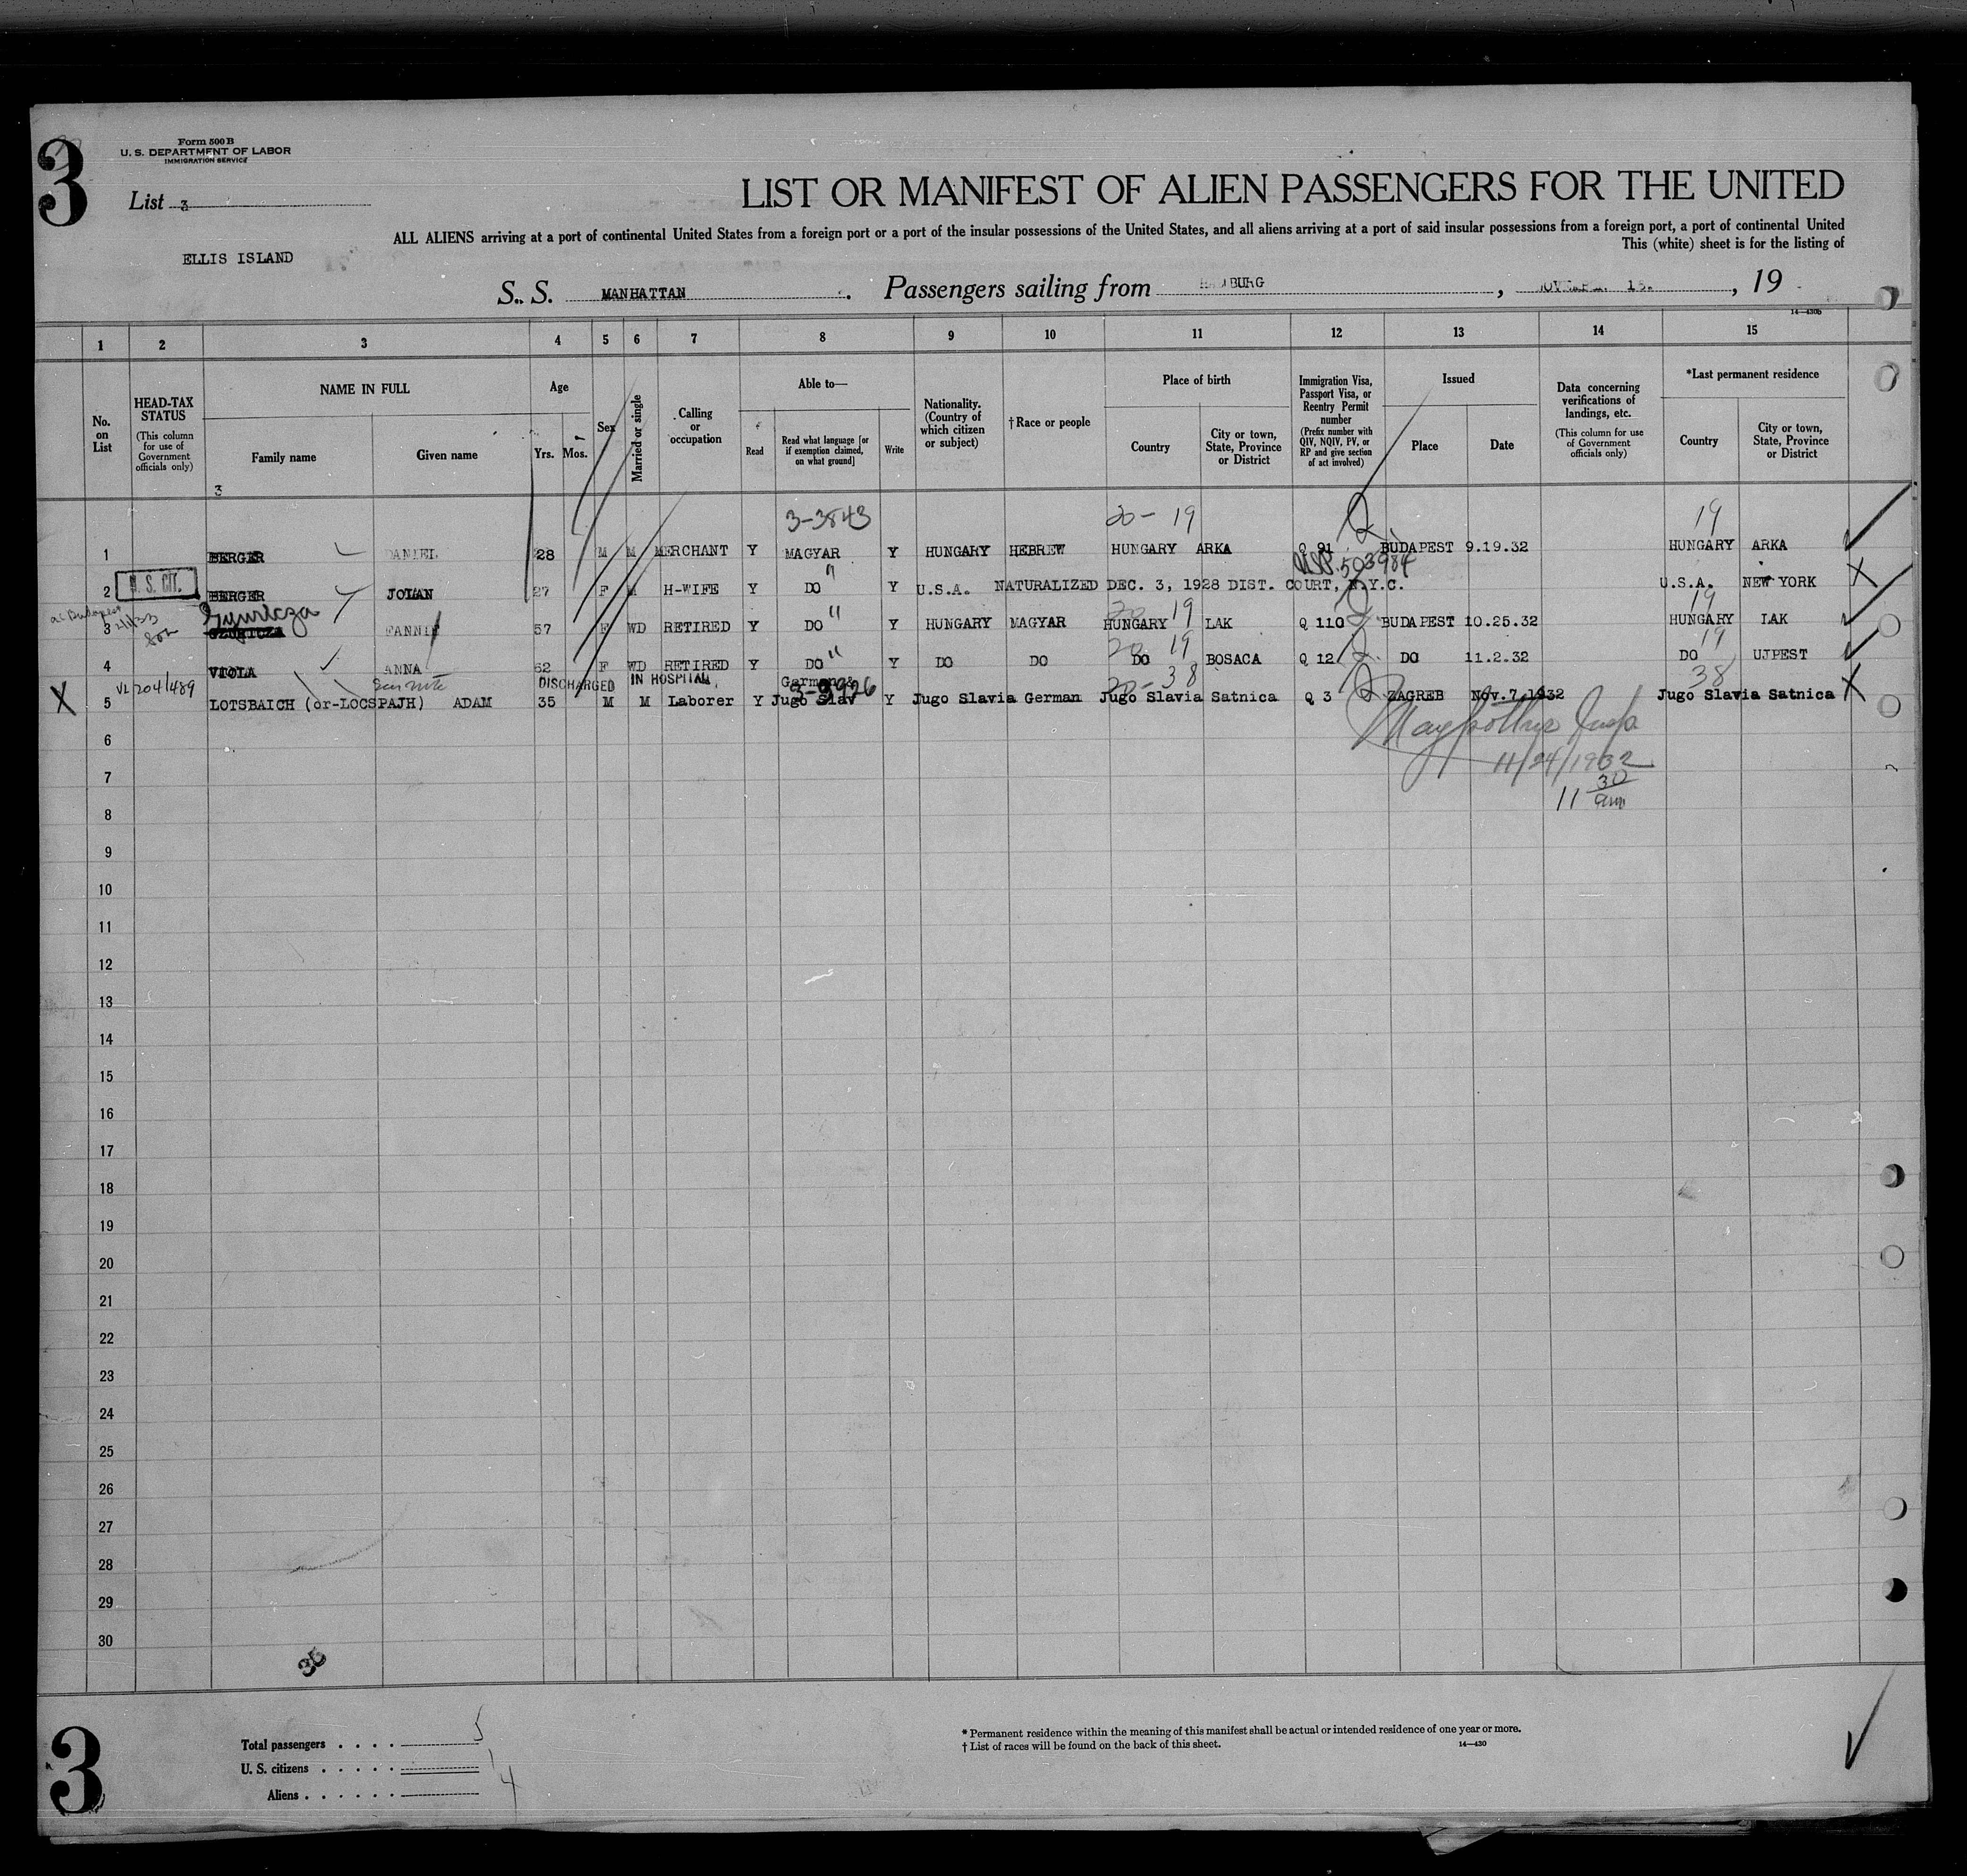 3
Form 500 B
U. S. DEPARTMENT OF LABOR
IMMIGRATION SERVICE
List 3
LIST OR MANIFEST OF ALIEN PASSENGERS FOR THE UNITED
ALL ALIENS arriving at a port of continental United States from a foreign port or a port of the insular possessions of the United States, and all aliens arriving at a port of said insular possessions from a foreign port, a port of continental United
This (white) sheet is for the listing of
ELLIS ISLAND
S. S. MANHATTAN Passengers sailing from HAMBURG , 19
14—430b
1 2 3 4 5 6 7 8 9 10 11 12 13 14 15
No. on List
HEAD-TAX STATUS (This column for use of Government officials only)
NAME IN FULL
Family name Given name
Age
Yrs. Mos.
Sex
Married or single
Calling or occupation
Able to—
Read Read what language [or if exemption claimed, on what ground] Write
Nationality. (Country of which citizen or subject)
†Race or people
Place of birth
Country City or town, State, Province or District
Immigration Visa, Passport Visa, or Reentry Permit number (Prefix number with QIV, NQIV, PV, or RP and give section of act involved)
Issued
Place Date
Data concerning verifications of landings, etc. (This column for use of Government officials only)
*Last permanent residence
Country City or town, State, Province or District
3
3-3843 20- 19 19
1 BERGER DANIEL 28 M M MERCHANT Y MAGYAR Y HUNGARY HEBREW HUNGARY ARKA Q 91 BUDAPEST 9.19.32 HUNGARY ARKA
U.S.P. 503984
2 U. S. CIT. BERGER JOLAN 27 F M H-WIFE Y DO " Y U.S.A. NATURALIZED DEC. 3, 1928 DIST. COURT, N.Y.C. U.S.A. NEW YORK
20 19 19
3 FANNIE 57 F WD RETIRED Y DO " Y HUNGARY MAGYAR HUNGARY LAK Q 110 BUDAPEST 10.25.32 HUNGARY LAK
20 19 19
4 VIOLA ANNA 62 F WD RETIRED Y DO " Y DO DO DO BOSACA Q 12 DO 11.2.32 DO UJPEST
VL 204/489 DISCHARGED IN HOSPITAL German & 3-9926 20-38 38
X 5 LOTSBAICH (or-LOCSPAJH) ADAM 35 M M Laborer Y Jugo Slav Y Jugo Slavia German Jugo Slavia Satnica Q 3 ZAGREB Nov.7,1932 Jugo Slavia Satnica X
11/24/1932
11 30 am
6
7
8
9
10
11
12
13
14
15
16
17
18
19
20
21
22
23
24
25
26
27
28
29
30
36
3
Total passengers . . . . 5
U. S. citizens . . . . . 1
Aliens . . . . . . 4
* Permanent residence within the meaning of this manifest shall be actual or intended residence of one year or more.
† List of races will be found on the back of this sheet.
14—430